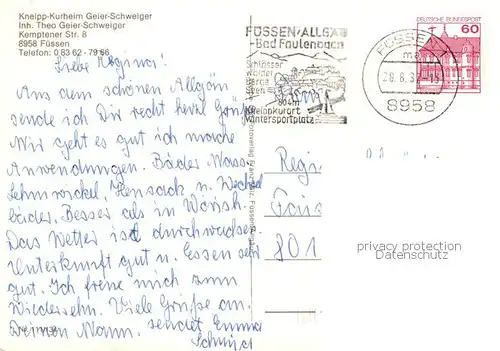 Kneipp-Kurheim Geier-Schweiger
Inh. Theo Geier-Schweiger
Kemptener Str. 8
8958 Füssen
Telefon: 0 83 62 - 79 66
Liebe Regina!
Aus dem schönen Allgäu
sende ich Dir recht herzl. Grüße
Mir geht es gut ich mache
Anwendungen. Bäder Wass.
Lehmwickel, Heusack u. Wechsel
bäder. Besser als in Wörish.
Das Wetter ist durchwachsen
Unterkunft gut u. Essen sehr
gut. Ich freue mich zum
Wiedersehn. Viele Grüße an
Deinen Mann. sendet Emma
Schmid
FÜSSEN/ALLGÄU
Bad Faulenbach
Schlösser
Wälder
Berge
Seen
804m
Kneippkurort
Wintersportplatz
FÜSSEN 1
ma
28.8.87-15
8958
DEUTSCHE BUNDESPOST
60
Regi
801
privacy protection
Datenschutz